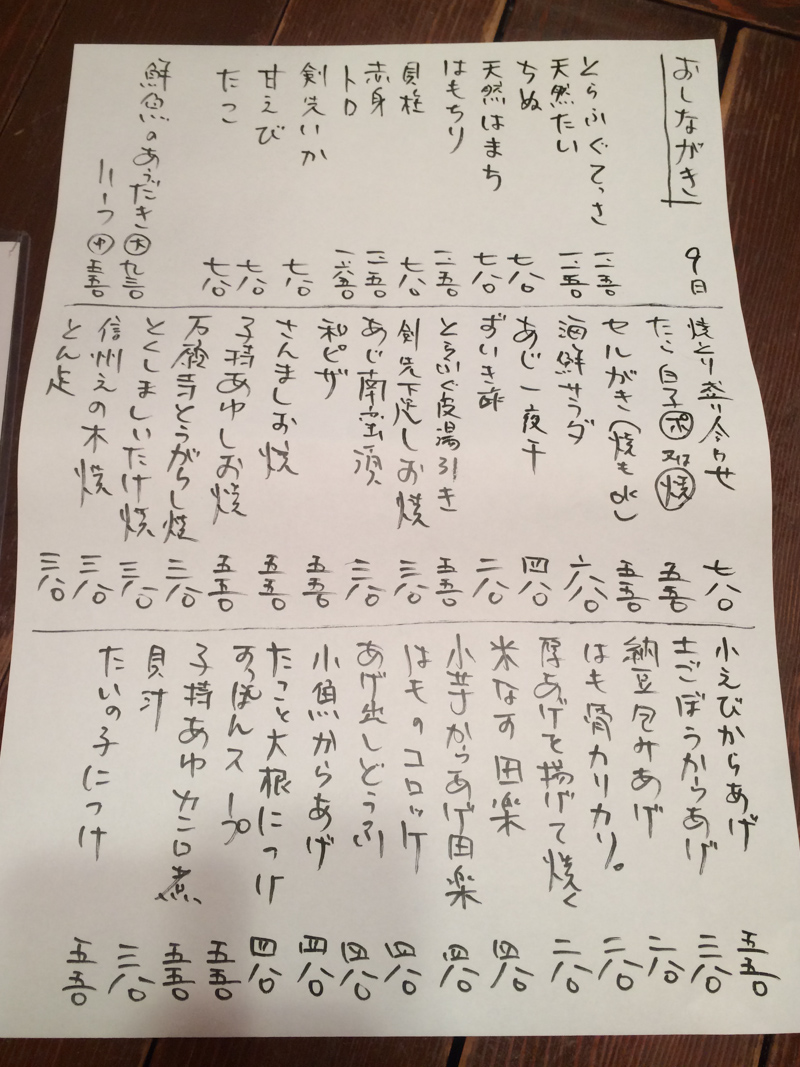 おしながき
9日
とらふぐてっさ
天然たい
ちぬ 七八〇
天然はまち 七八〇
はもちり
貝柱 七八〇
赤身
トロ
剣先いか 七八〇
甘えび 七八〇
たこ 七八〇
鮮魚のあらだき 大 九三〇
ハーフ 中 五五〇
焼とり盛り合わせ 七八〇
たこ白子 ポ 又は 焼 五五〇
セルがき(焼もok) 五五〇
海鮮サラダ 六八〇
あじ一夜干 四八〇
ずいき酢 二八〇
とらふぐ皮湯引き 五五〇
剣先下足しお焼 三八〇
あじ南蛮漬 三八〇
和ピザ 五五〇
さんましお焼 五五〇
子持あゆしお焼 五五〇
万願寺とうがらし焼 三八〇
とくしましいたけ焼 三八〇
信州えの木焼 三八〇
とん足 三八〇
小えびからあげ 五五〇
土ごぼうからあげ 三八〇
納豆包みあげ 二八〇
はも骨カリカリ。 二八〇
厚あげを揚げて焼く 二八〇
米なす田楽 四八〇
小芋からあげ田楽 四八〇
はものコロッケ 四八〇
あげ出しどうふ 四八〇
小魚からあげ 四八〇
たこと大根につけ 四八〇
すっぽんスープ 五五〇
子持あゆカンロ煮 五五〇
貝汁 三八〇
たいの子につけ 五五〇